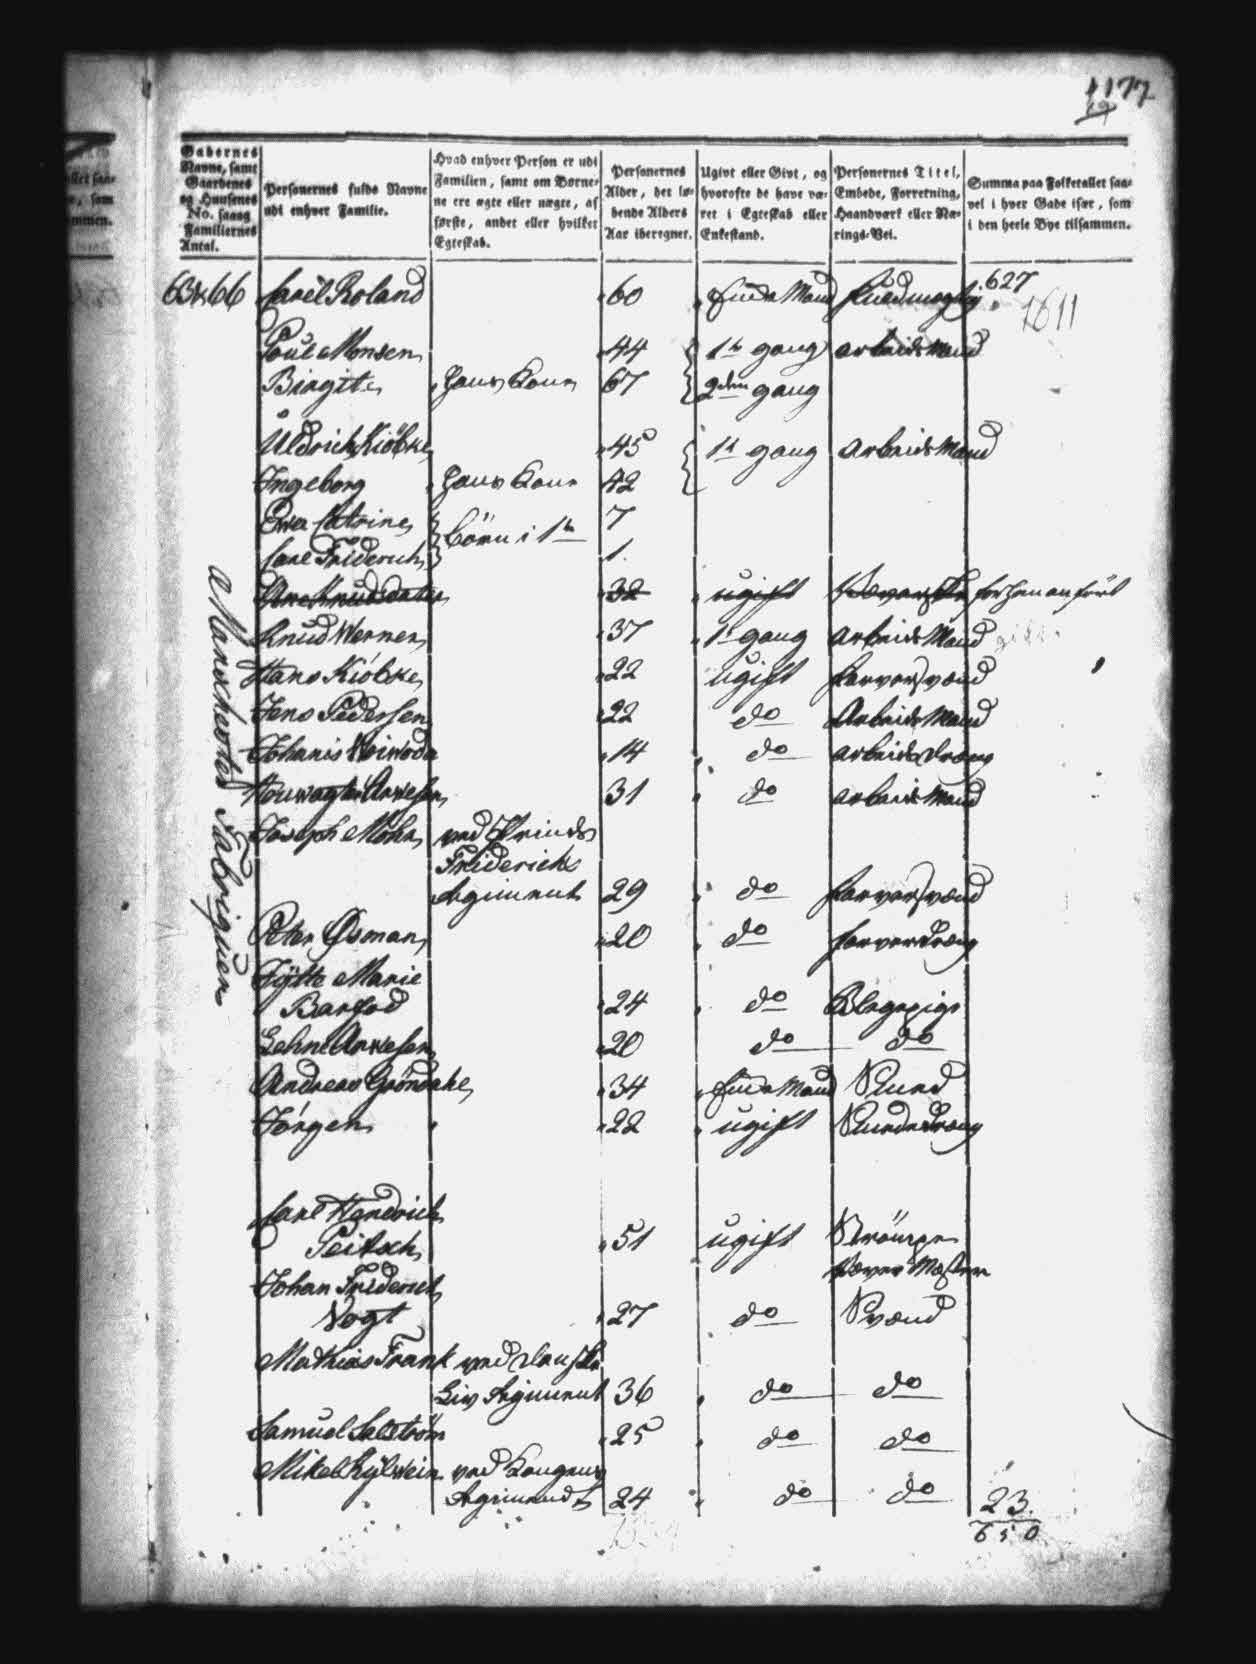 1177
69
Gadernes Navne, samt Gaardenes og Huusenes No. saaog Familiernes Antal.
Personernes fulde Navne udi enhver Familie.
Hvad enhver Person er udi Familien, samt om Børnene ere ægte eller uægte, af første, andet eller hvilket Egteskab.
Personernes Alder, det løbende Alders Aar iberegnet.
Ugivt eller Givt, og hvorofte de have været i Egteskab eller Enkestand.
Personernes Titel, Embede, Forretning, Haandværk eller Nærings-Vei.
Summa paa Folketallet saavel i hver Gade især, som i den heele Bye tilsammen.
627
1611
63 & 66 Carel Roland 60 Enke Mand Fuldmægtig
Poul Monsen 44 1te gang arbeids Mand
Birgite hans Kone 67 2den gang
Uldrich Kiöbke 45 1te gang arbeids Mand
Ingeborg hans Kone 42
Ewa Catrine 7
börn i 1te
Carl Friderich 1
Ane Knudsdatter 32 ugift forhen anfört
Knud Werner 37 1te gang arbeids Mand
Hans Kiöbke 22 ugift farver svend
Jens Pedersen 22 do Arbeids Mand
Johanis Weiwoda 14 do arbeids dreng
31 do arbeids Mand
Joseph Mohr ved Prinds
Friderichs
Regiment 29 do farver svend
Peter Osman 20 do farver dreng
Jytte Marie
Barfod 24 do Blegepige
Lehne Arvesen 20 do do
Andreas Gröndahl 34 Enke Mand Smed
Jörgen 22 ugift Smede dreng
Carl Hendrich
Peitsch 51 ugift Strömpe
Væver Mester
Johan Friderich
Vogt 27 do Svend
Mathias Frank ved danske
Liv Regiment 36 do do
Samuel Salström 25 do do
Mikel Rylwein ved Kongens
Regiment 24 do do
23
650
Manchester Fabriquen